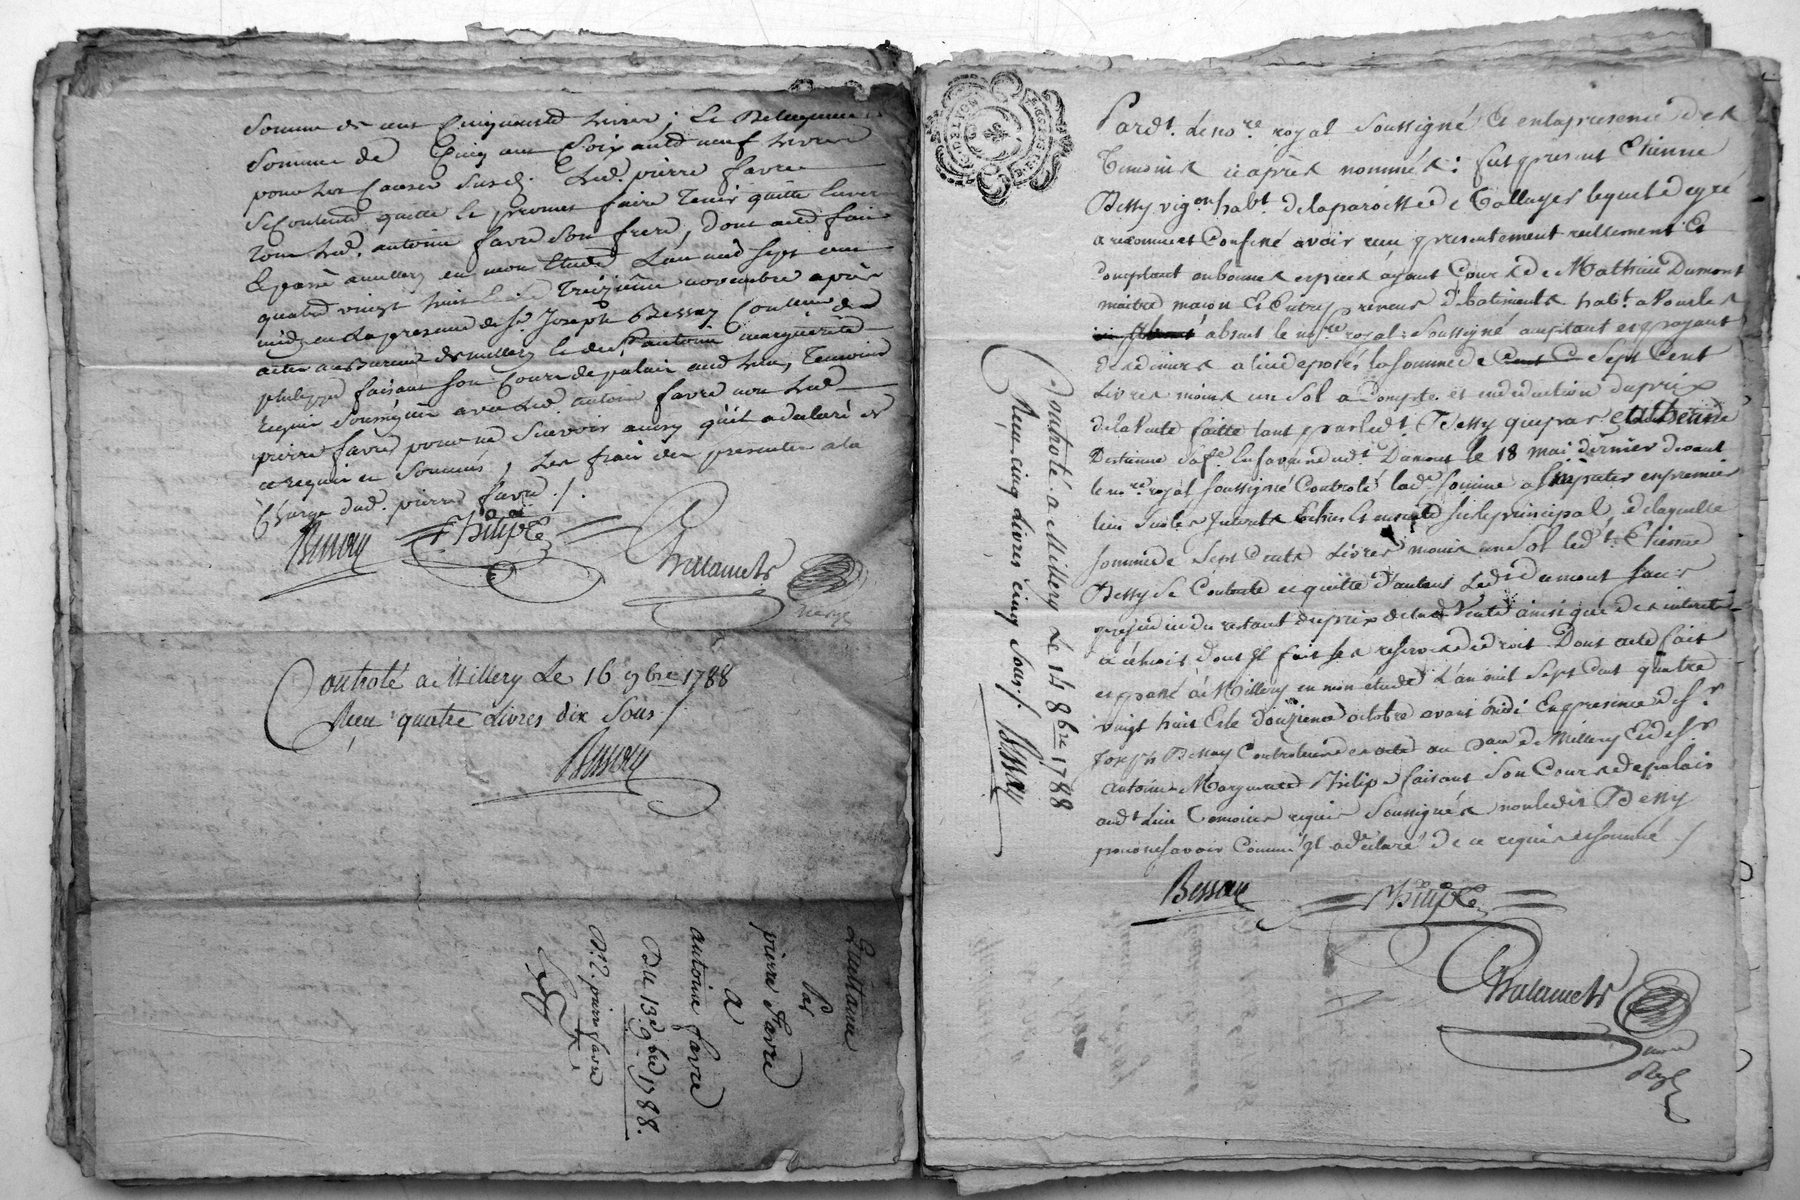 Somme de cent Cinquante Livres; Le
Somme de Cinq cent Soixante neuf Livres
pour Les Causes Susd. Led. pierre favre
Se Contente quitte & promet faire Tenir quitte Envers
Tous Led. antoine favre Son frere, dont acte fait
& passé a millery en mon Etude L'an mil Sept cent
quatre vingt huit & Le Treizième novembre après
midy en La presence de Sr. Joseph Bessay Controlleur des
actes au Bureau de millery & de Sr. antoine marguerite
philippe faisant Son Cours de palais aud. Lieu, Temoins
Requis Soussignés avec Led. antoine favre non Led.
pierre favre pour ne Scavoir ainsy qu'il a declaré de
ce requis et Sommé, Les frais des presentes a la
Charge dud. pierre favre ./.
Bessay Philipe
Controlé a Millery Le 16 9bre 1788
Reçu quatre Livres dix Sous /
Bessay
Quittance
par
pierre favre
a
antoine favre
Du 13e. 9bre 1788.
pierre favre
Pardt. Le no.re royal Soussigné Et en la presence des
Temoins ci après nommés: fut present Etienne
Bessy vig.on hab.t de la paroisse de Tallayes lequel de gré
a reconnu et Confessé avoir reçu presentement reellement Et
comptant en bonnes especes ayant Cours de Mathieu Dumont
maitre maçon Et Entrepreneur de batiments hab.t a Vourles
absent le no.re royal Soussigné acceptant et payant
des deniers a lui deposés la somme de Sept Cent
Livres moins un Sol a Compte et en deduction du prix
de la Vente faitte tant par led.t Bessy que par Catherine
sa fe. En faveur dud.t Dumont le 18 mai dernier devant
le no.re royal Soussigné Controlé lade. Somme a Imputer en premier
lieu Sur les Interets Echus Et ensuite Sur le principal, de laquelle
Somme de Sept Cents Livres moins un Sol led.t Etienne
Bessy Se Contente et quitte d'autant Led.t dumont Sans
prejudice du restant du prix de lad. Vente ainsi que des interets
a echoir dont Il fait ses reserves de droit Dont acte fait
et passé à Millery en mon étude L'an mil Sept Cent quatre
vingt huit & le douzieme octobre avant midi En presence de Sr.
Joseph Bessay Controleur des actes au Bau. de Millery & de Sr.
antoine Marguerite Philipe faisant Son Cours de palais
aud.t Lieu Temoins requis Soussignés non ledit Bessy
pour ne Savoir Comme Il a declaré de ce requis et Sommé /
Bessay Philipe
Controlé a Millery Le 14 8bre 1788
Reçu cinq Livres cinq Sous /. Bessay